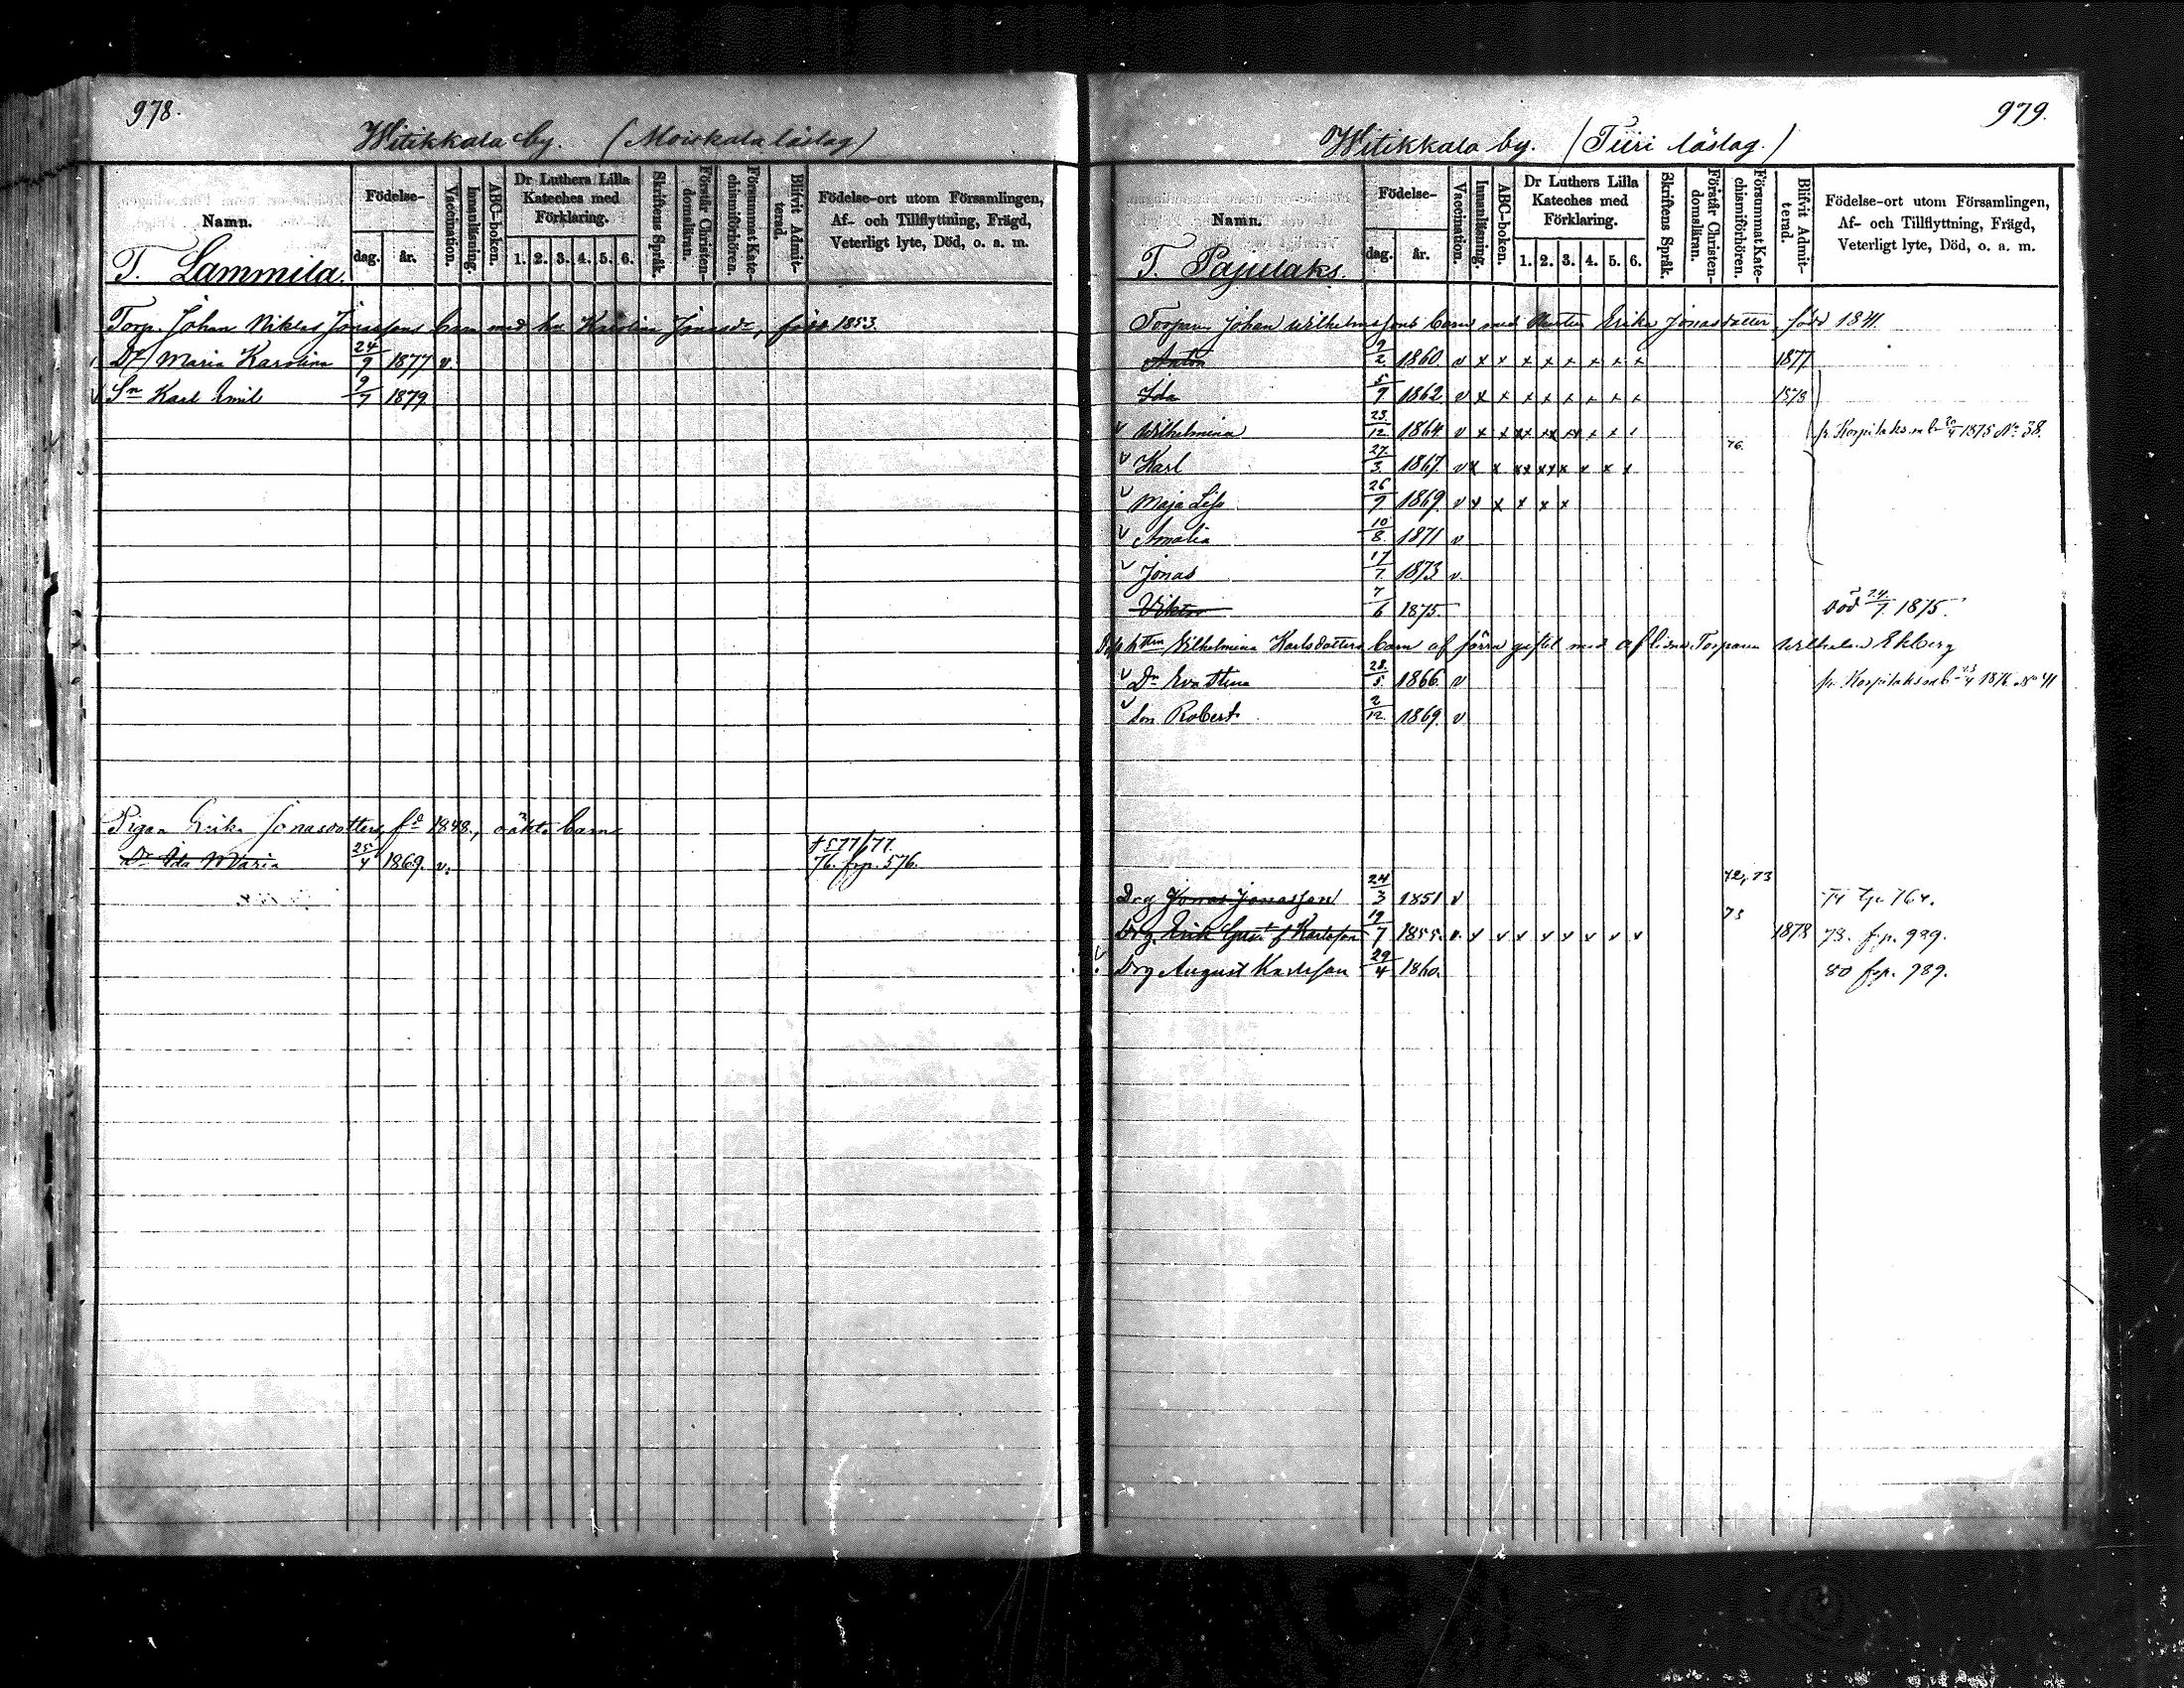 978.
Witikkala by. (Moiskala läslag)
Namn.
Födelse-
dag.
år.
Vaccination.
Innanläsning.
ABC-boken.
Dr Luthers Lilla Kateches med Förklaring.
1. 2. 3. 4. 5. 6.
Skriftens Språk.
Förstår Christendomsläran.
Försummat Katechismiförhören.
Blifvit Admitterad.
Födelse-ort utom Församlingen,
Af- och Tillflyttning, Frägd,
Veterligt lyte, Död, o. a. m.
T. Lammila.
Torp. Johan Niklas Jonassons barn med hu Karolina Jonasdr, född 1853.
Dr Maria Karolina 24/9 1877 v.
Sn Karl Emil 9/7 1879
Pigan Erika Jonasdotters, fd 1848, oäkta barn
† 577/77.
Dr Ida Maria 25/4 1869. v. 76. frp. 576.
979.
Witikkala by. (Tiiri läslag.)
Namn.
Födelse-
dag.
år.
Vaccination.
Innanläsning.
ABC-boken.
Dr Luthers Lilla Kateches med Förklaring.
1. 2. 3. 4. 5. 6.
Skriftens Språk.
Förstår Christendomsläran.
Försummat Katechismiförhören.
Blifvit Admitterad.
Födelse-ort utom Församlingen,
Af- och Tillflyttning, Frägd,
Veterligt lyte, Död, o. a. m.
T. Pajulaks.
Torparen Johan Wilhelmssons barn med Hustru Erika Jonasdotter född 1841.
Anton 9/2 1860. v x x x x x x x x 1877
Ida 5/9 1862 v x x x x x x x x 1878
v Wilhelmina 23/12 1864 v x x xx xx xx x x fr. Korpilaks m b 20/4 1875 No 38.
v Karl 27/3 1867. v x x xx xx x x x x 76.
v Maja Lisa 26/9 1869. v x x x x x
v Amalia 10/8 1871 v
v Jonas 17/7 1873 v.
Viktor 7/6 1875. död 24/7 1875.
hustrun Wilhelmina Karlsdotters barn af förra giftet med aflidne Torparen Wilhelm Ekberg
v Dr Eva Stina 28/5 1866. v fr Korpilaks m b 23/4 1876 No 41
v Son Robert 2/12 1869. v
Drg Jonas Jonasson 24/3 1851 v 72, 73 74 tp. 764.
Drg. Erik Gust. f Karlsson 19/7 1855. v. x x x x x x x x 73 1878 73. frp. 999.
v Drg August Karlsson 29/4 1860. 80 frp. 989.